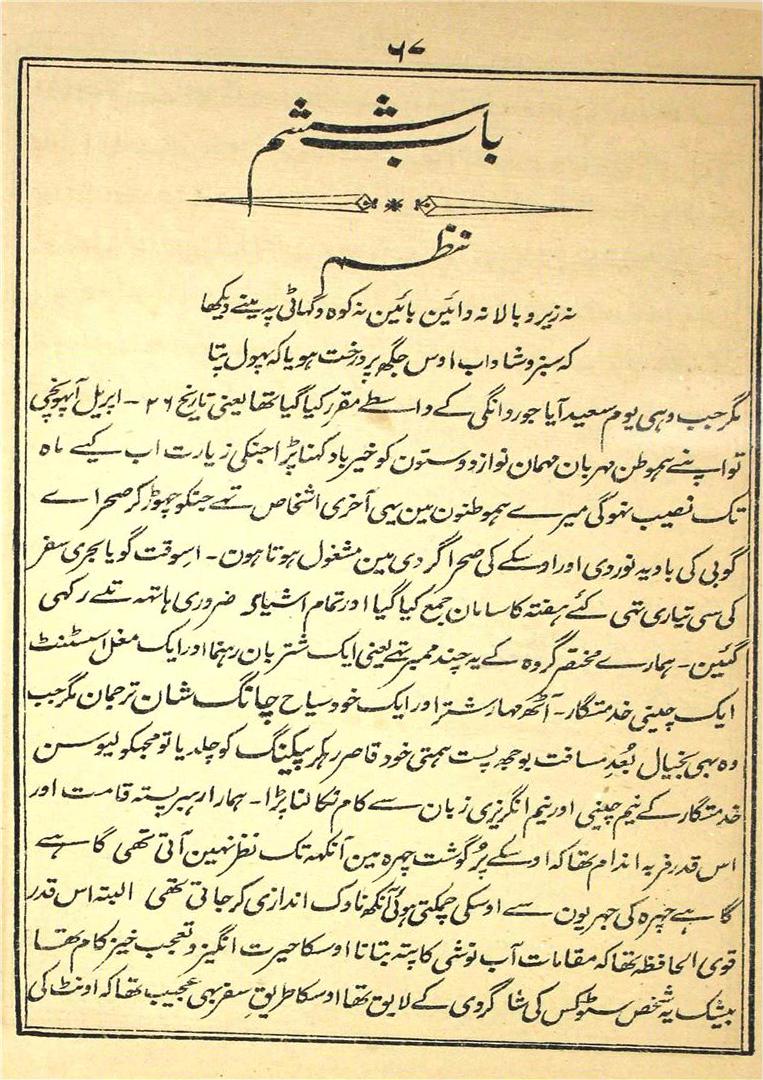 ۶۷
باب ششم
نظم
نہ زیر و بالا نہ دائین بائین نہ کوہ و گہاٹی پہ مینے دیکھا
کہ سبز و شاداب اوس جگھ پر درخت ہو یا کہ پہول پتا
مگر جب وہی یوم سعید آیا جو روانگی کے واسطے مقرر کیا گیا تھا یعنی تاریخ ۲۶ - اپریل آپہونچی
تو اپنے ہموطن مہربان مہمان نواز دوستون کو خیرباد کہنا پڑا جنکی زیارت اب کیے ماہ
تک نصیب نہوگی میرے ہموطنون مین یہی آخری اشخاص تہے جنکو چھوڑ کر صحراے
گوبی کی بادیہ نوردی اور اوسکے کی صحرا گردی مین مشغول ہوتا ہون - اسوقت گویا بحری سفر
کی سی تیاری تہی کئے ہفتہ کا سامان جمع کیا گیا اور تمام اشیاء ضروری ہاتہہ تلے رکہی
گئین - ہمارے مختصر گروہ کے یہ چند ممبر تہے یعنی ایک شتربان رہنما اور ایک مغل اسسٹنٹ
ایک چینی خدمتگار - آٹھ مہار شتر اور ایک خود سیاح چانگ شان ترجمان مگر جب
وہ بہی بخیال بُعدِ مسافت بوجھ پست ہمتی خود قاصر رہکر پیکینگ کو چلدیا تو مجھکو لیوسن
خدمتگار کے نیم چینی اور نیم انگریزی زبان سے کام نکالنا پڑا - ہمارا رہبر پستہ قامت اور
اس قدر فربہ اندام تھا کہ اوسکے پُر گوشت چہرہ مین آنکہہ تک نظر نہین آتی تھی گاہے
گاہے چہرہ کی جہریون سے اوسکی چمکتی ہوئی آنکھ ناوک اندازی کرجاتی تھی البتہ اس قدر
قوی الحافظہ تھا کہ مقامات آب نوشی کا پتہ بتانا اوسکا حیرت انگیز و تعجب خیز کام تھا
بیشک یہ شخص سٹوئکس کی شاگردی کے لایق تھا اوسکا طریق سفر بہی عجیب تھا کہ اونٹ کی